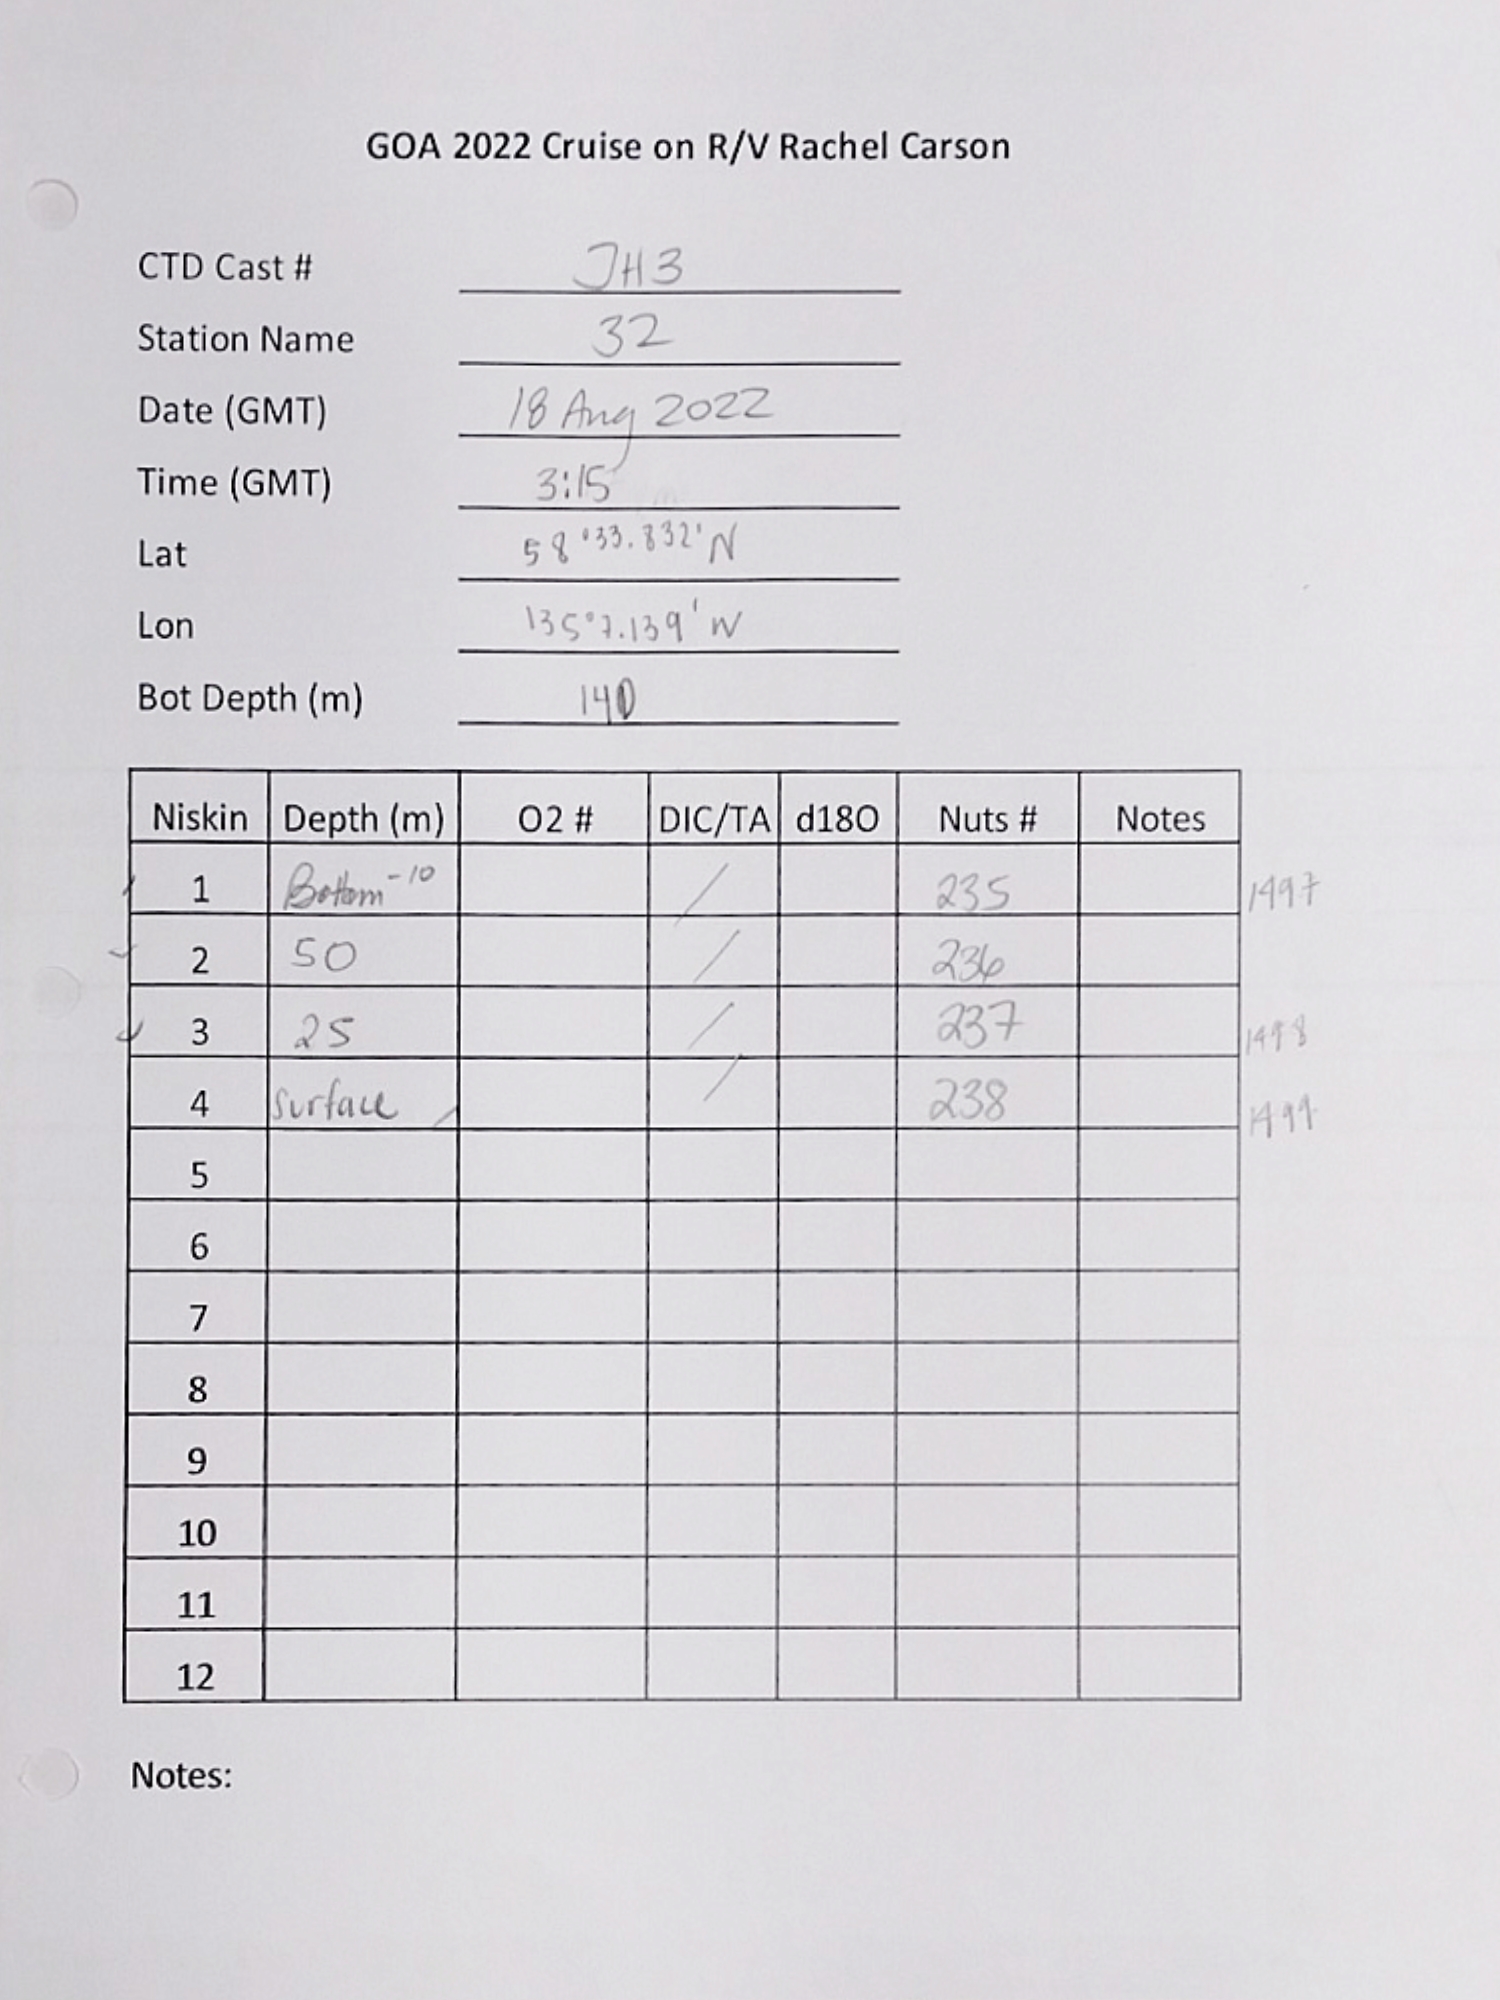 GOA 2022 Cruise on R/V Rachel Carson
CTD Cast # JH3
Station Name 32
Date (GMT) 18 Aug 2022
Time (GMT) 3:15
Lat 58°33.832'N
Lon 135°7.139'W
Bot Depth (m) 140
Niskin Depth (m) O2 # DIC/TA d18O Nuts # Notes
1 Bottom-10 / 235 1497
2 50 / 236
3 25 / 237 1498
4 Surface / / 238 1499
5
6
7
8
9
10
11
12
Notes: